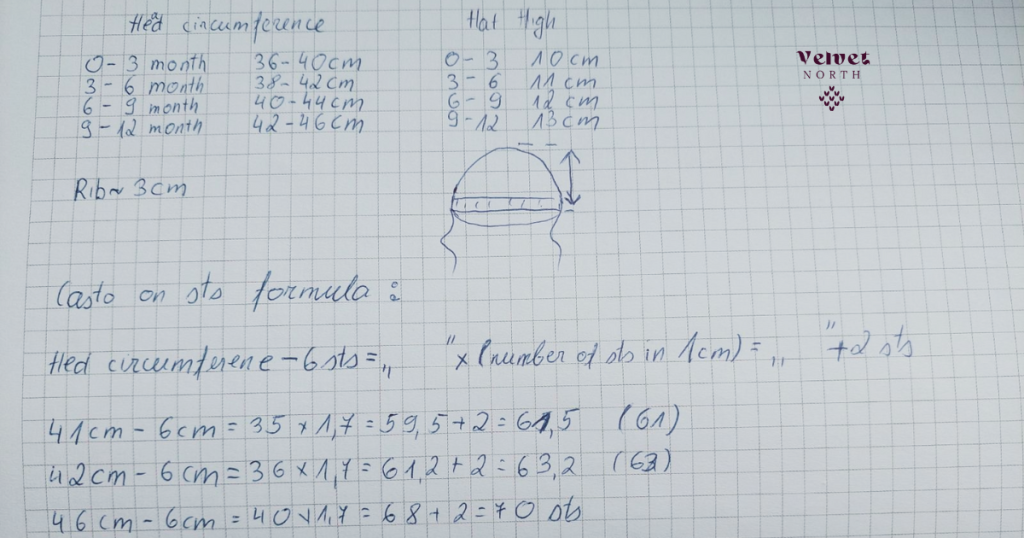 Hed circumference
Hat High
0-3 month 36-40cm
3-6 month 38-42cm
6-9 month 40-44cm
9-12 month 42-46cm
0-3 10cm
3-6 11cm
6-9 12cm
9-12 13cm
Velvet
NORTH
Rib~ 3cm
Casto on sts formula:
Hed circumferene - 6 sts = „ " x (number of sts in 1cm) = „ " + 2 sts
41cm - 6cm = 35 x 1,7 = 59,5 + 2 = 61,5 (61)
42cm - 6cm = 36 x 1,7 = 61,2 + 2 = 63,2 (63)
46cm - 6cm = 40 x 1,7 = 68 + 2 = 70 sts